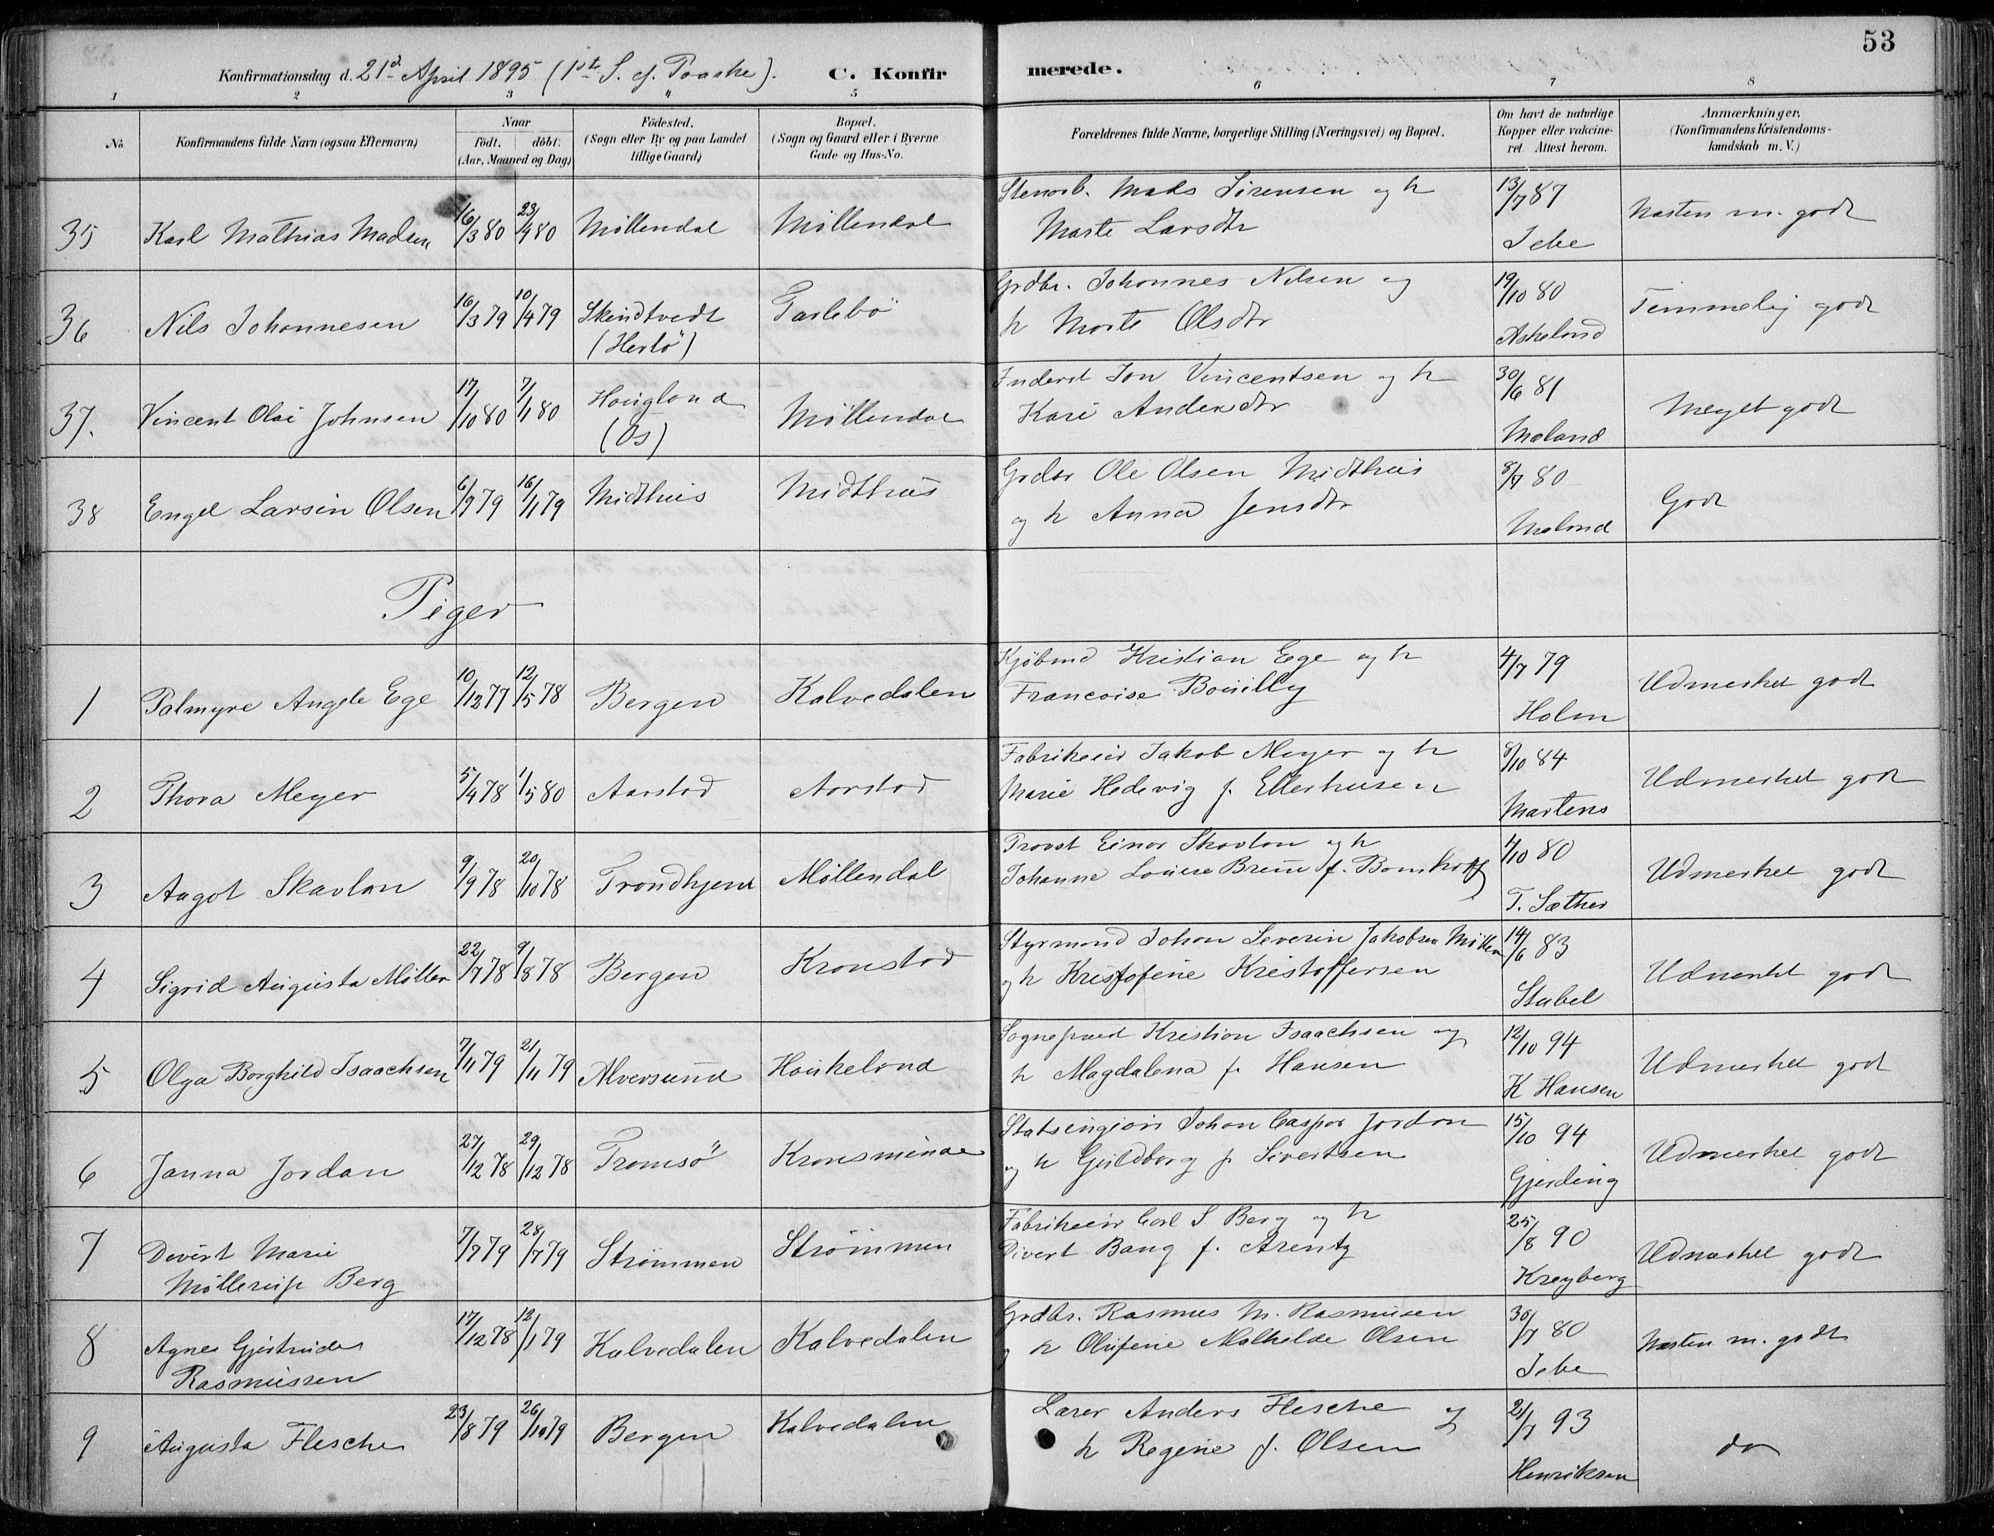 53
Konfirmationsdag d. 21d April 1895 (1ste S. ef. Paaske). C. Konfirmerede.
1 2 3 4 5 6 7 8
No. Konfirmandens fulde Navn (ogsaa Efternavn) Naar født. døbt. (Aar, Maaned og Dag) Fødested. (Sogn eller By og paa Landet tillige Gaard) Bopæl. (Sogn og Gaard eller i Byerne Gade og Hus-No. Forældrenes fulde Navne, borgerlige Stilling (Næringsvei) og Bopæl. Om havt de naturlige Kopper eller vakcineret. Attest herom. Anmærkninger. (Konfirmandens Kristendomskundskab m. V.)
35 Karl Mathias Madsen 16/3 80 23/4 80 Møllendal Møllendal Stenarb. Mads Sørensen og h Marte Larsdtr 13/7 87 Jebe Næsten m. godt
36 Nils Johannesen 16/3 79 10/4 79 Skindtvedt (Herlö) Tarlebö Grdbr. Johannes Nilsen og h Marte Olsdtr 19/10 80 Askeland Temmelig godt
37. Vincent Olai Johnsen 17/10 80 7/11 80 Hougland (Os) Møllendal Inderst Jon Vincentsen og h Kari Andersdtr 30/6 81 Meland Meget godt
38 Engel Larsin Olsen 6/9 79 16/11 79 Midthus Midthus Grdbr Ole Olsen Midthus og h Anna Jensdtr 8/7 80 Meland Godt
Piger
1 Palmyre Angele Ege 10/12 77 12/5 78 Bergen Kalvedalen Kjøbmd Kristian Ege og h Francoise Bouilly 4/7 79 Holm Udmerket godt
2 Thora Meyer 5/4 78 1/5 80 Aarstad Aarstad Fabrikeier Jakob Meyer og h Marie Hedevig f. Ellerhusen 8/10 84 Martens Udmerket godt
3 Aagot Skavlan 9/9 78 20/10 78 Trondhjem Møllendal Provst Einar Skavlan og h Johanne Louise Brun f. Bomhoff 4/10 80 T. Sæther Udmerket godt
4 Sigrid Augusta Møller 22/7 78 9/8 78 Bergen Kronstad Styrmand Johan Severin Jakobsen Møller og h Kristofine Kristoffersen 14/6 83 Stabel Udmerket godt
5 Olga Borghild Isaachsen 7/11 79 21/11 79 Alversund Haukeland Sognepræst Kristian Isaachsen og h Magdalena f. Hansen 12/10 94 K Hansen Udmerket godt
6 Janna Jordan 27/12 78 29/12 78 Tromsö Kronsminde Statsingiør Johan Caspar Jordan og h Guldborg f. Sivertsen 15/10 94 Gjerding Udmerket godt
7 Divert Marie Møllerup Berg 7/7 79 28/7 79 Strømmen Strømmen Fabrikeier Carl S Berg og h Divert Bang f. Arentz 25/8 90 Kreyberg Udmerket godt
8 Agnes Gjertrude Rasmussen 17/12 78 12/1 79 Kalvedalen Kalvedalen Grdbr. Rasmus M. Rasmusen og h Olufine Mathilde Olsen 30/7 80 Jebe Næsten m. godt
9 Augusta Flesche 23/8 79 26/10 79 Bergen Kalvedalen Lærer Anders Flesche og h Regine f. Olsen 21/7 93 Henriksen do